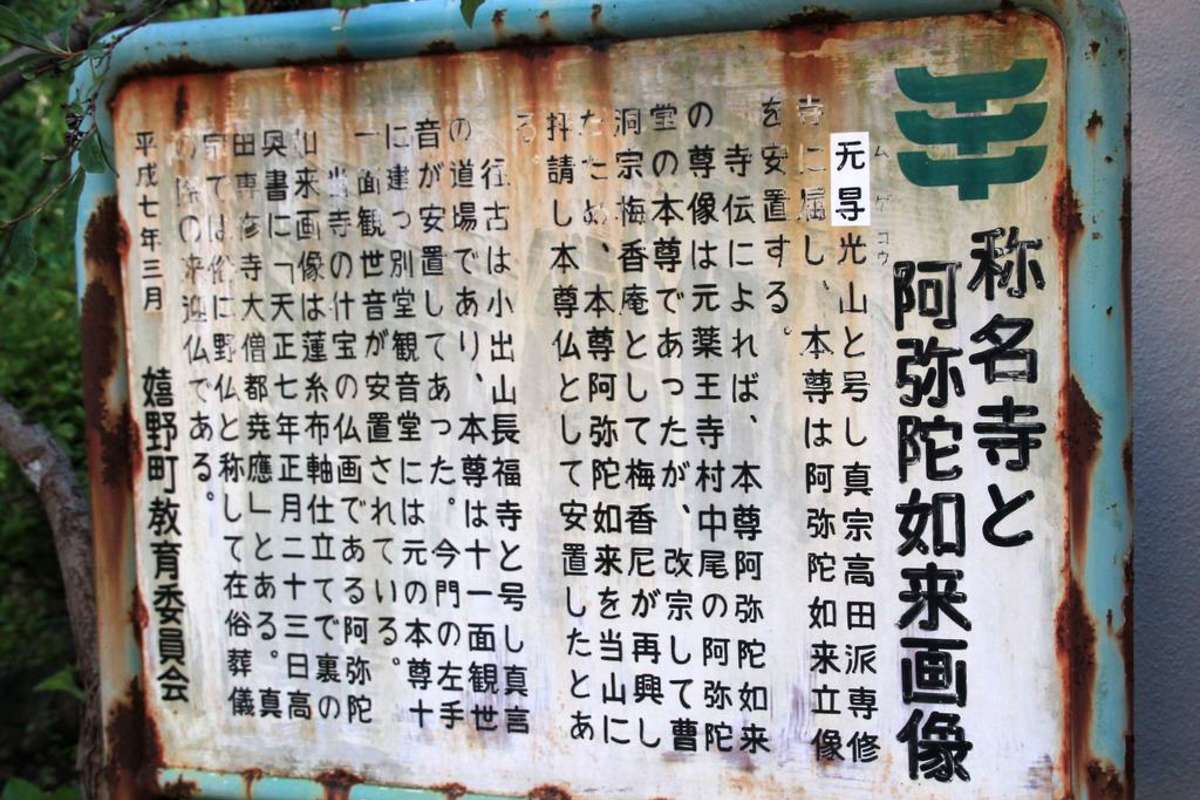 称名寺と
阿弥陀如来画像
ムゲコウ
无㝵光山と号し真宗高田派専修
寺に属し、本尊は阿弥陀如来立像
を安置する。
寺伝によれば、本尊阿弥陀如来
の尊像は元薬王寺村中尾の阿弥陀
堂の本尊であったが、改宗して曹
洞宗梅香庵として梅香尼が再興し
たため、本尊阿弥陀如来を当山に
拝請し本尊仏として安置したとあ
る。
往古は小出山長福寺と号し真言
の道場であり、本尊は十一面観世
音が安置してあった。今門の左手
に建つ別堂観音堂には元の本尊十
一面観世音が安置されている。
当寺の什宝の仏画である阿弥陀
如来画像は蓮糸布軸仕立てで裏の
奥書に「天正七年正月二十三日高
田専修寺大僧都尭應」とある。真
宗では俗に野仏と称して在俗葬儀
の際の来迎仏である。
平成七年三月 嬉野町教育委員会